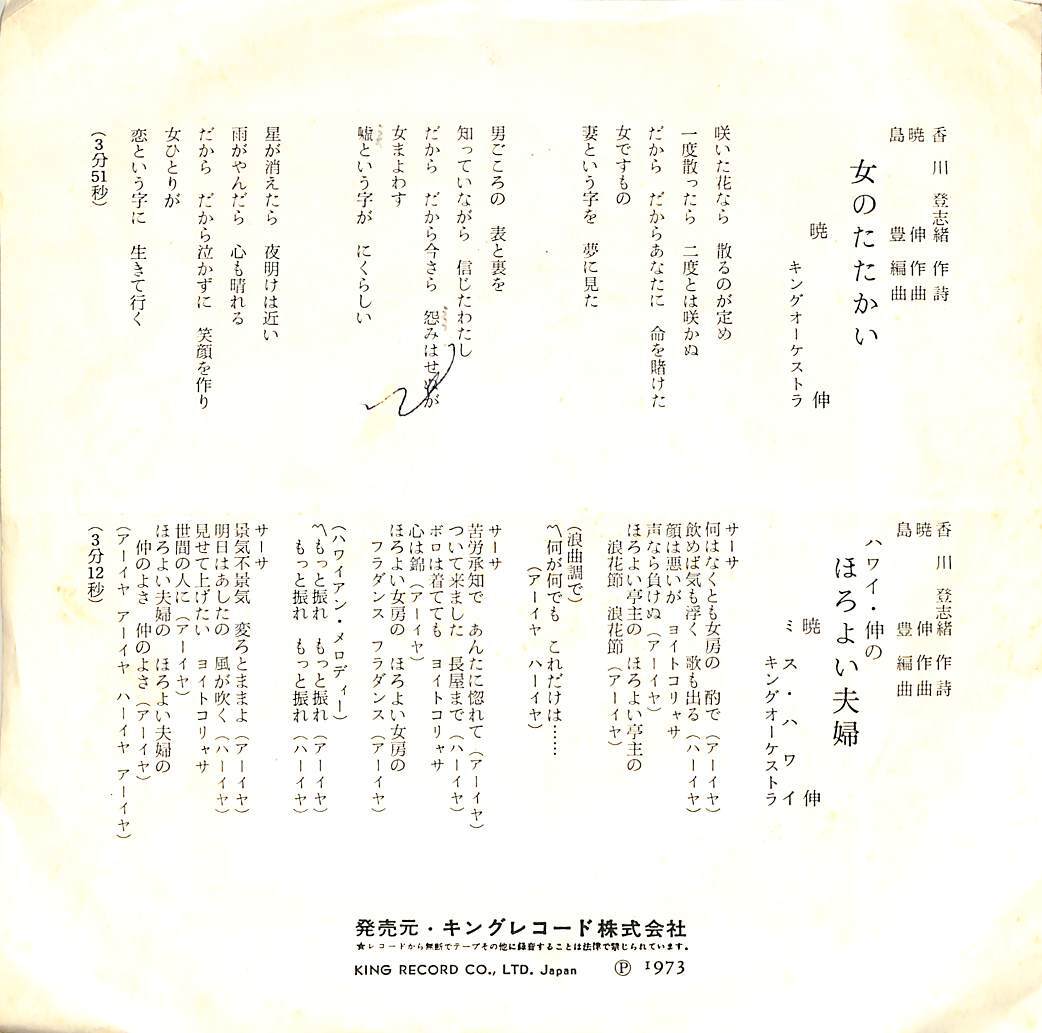 香川登志緒 作詩
暁 伸 作曲
島 豊 編曲
女のたたかい
暁 伸
キングオーケストラ
咲いた花なら 散るのが定め
一度散ったら 二度とは咲かぬ
だから だからあなたに 命を賭けた
女ですもの
妻という字を 夢に見た
男ごころの 表と裏を
知っていながら 信じたわたし
だから だから今さら 怨みはせぬが
女まよわす
嘘という字が にくらしい
星が消えたら 夜明けは近い
雨がやんだら 心も晴れる
だから だから泣かずに 笑顔を作り
女ひとりが
恋という字に 生きて行く
(3分51秒)
香川登志緒 作詩
暁 伸 作曲
島 豊 編曲
ハワイ・伸の
ほろよい夫婦
暁 伸
ミス・ハワイ
キングオーケストラ
サーサ
何はなくとも女房の 酌で(アーイヤ)
飲めば気も浮く 歌も出る(ハーイヤ)
顔は悪いが ヨイトコリャサ
声なら負けぬ(アーイヤ)
ほろよい亭主の ほろよい亭主の
浪花節 浪花節(アーイヤ)
(浪曲調で)
〽何が何でも これだけは……
(アーイヤ ハーイヤ)
サーサ
苦労承知で あんたに惚れて(アーイヤ)
ついて来ました 長屋まで(ハーイヤ)
ボロは着てても ヨイトコリャサ
心は錦(アーイヤ)
ほろよい女房の ほろよい女房の
フラダンス フラダンス(アーイヤ)
(ハワイアン・メロディー)
〽もっと振れ もっと振れ(アーイヤ)
もっと振れ もっと振れ(ハーイヤ)
サーサ
景気不景気 変ろとままよ(アーイヤ)
明日はあしたの 風が吹く(ハーイヤ)
見せて上げたい ヨイトコリャサ
世間の人に(アーイヤ)
ほろよい夫婦の ほろよい夫婦の
仲のよさ 仲のよさ(アーイヤ)
(アーイヤ アーイヤ ハーイヤ アーイヤ)
(3分12秒)
発売元・キングレコード株式会社
★レコードから無断でテープその他に録音することは法律で禁じられています。
KING RECORD CO., LTD. Japan ℗ 1973